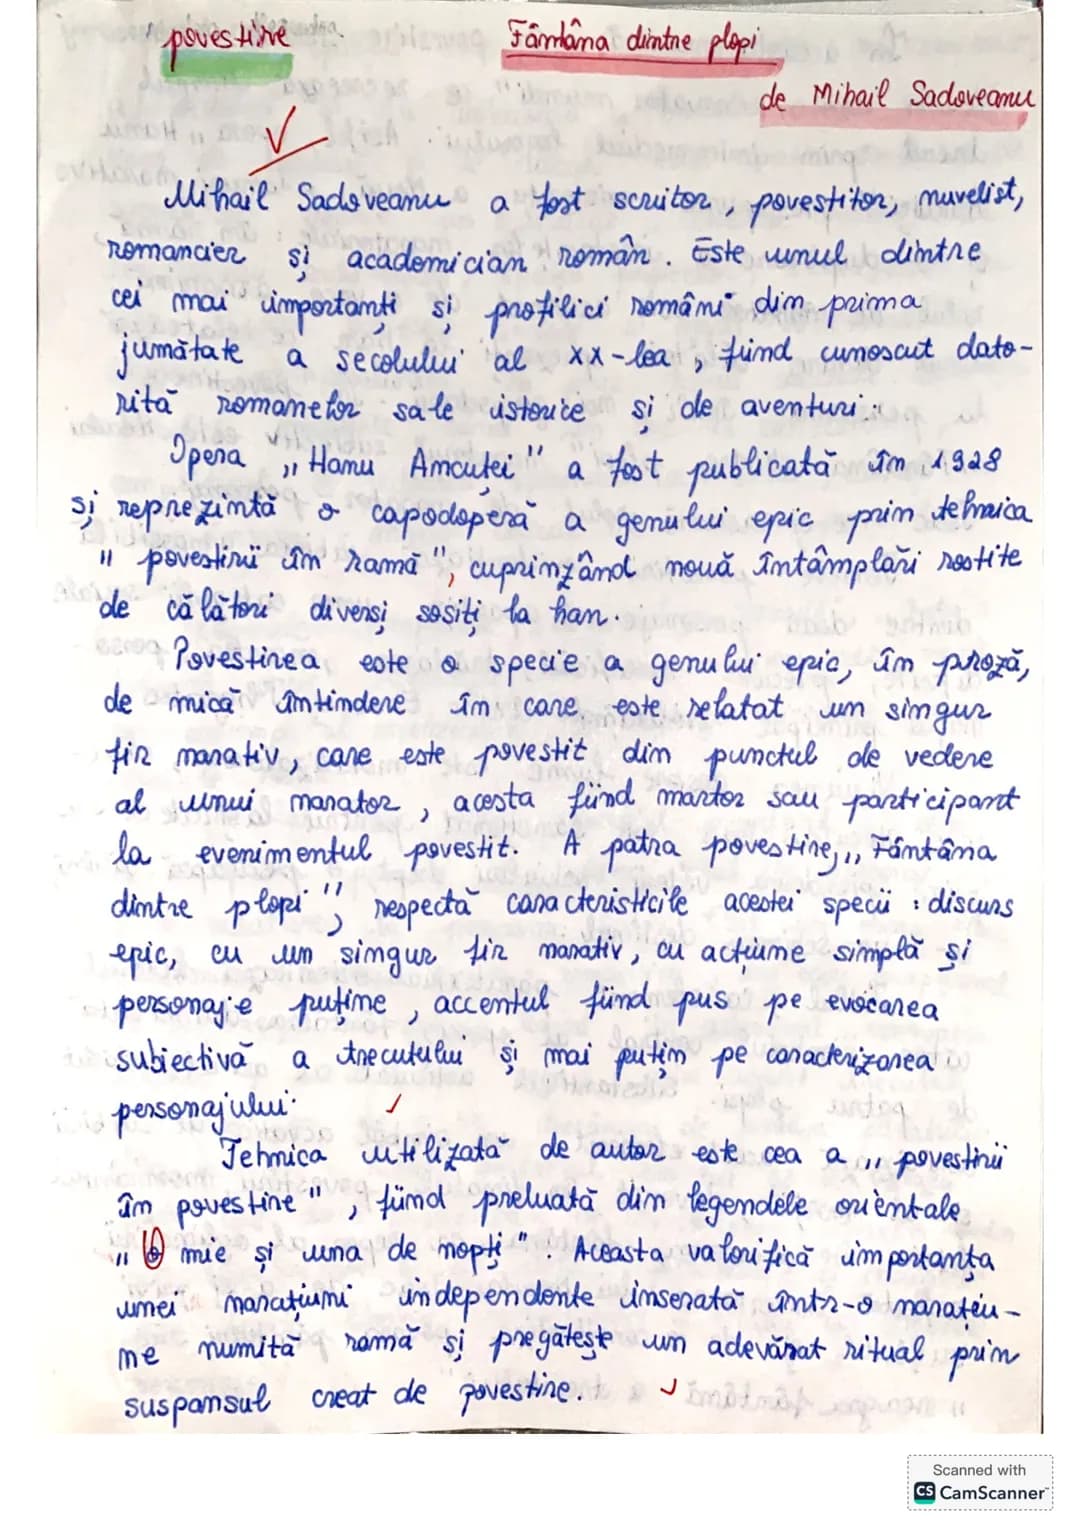 povestire
Fântâna dintre plopi
de Mihail Sadoveanu
Mihail Sadoveanu a fost scriitor, povestitor, nuvelist,
romancier și academician român. Este unul dintre
cei mai importanți și profilici români din prima
jumătate a secolului al XX-lea, fiind cunoscut dato-
rită romanelor sale istorice și de aventuri.
Opera „Hanu Ancuței" a fost publicată în 1928
și reprezintă o capodoperă a genului epic prin tehnica
„povestirii în ramă", cuprinzând nouă întâmplări rostite
de călători diverși sosiți la han.
Povestirea este o specie a genului epic, în proză,
de mică întindere în care este relatat un singur
fir narativ, care este povestit din punctul de vedere
al unui narator, acesta fiind martor sau participant
la evenimentul povestit. A patra povestire, „Fântâna
dintre plopi", respectă caracteristicile acestei specii: discurs
epic, cu un singur fir narativ, cu acțiune simplă și
personaje puține, accentul fiind pus pe evocarea
subiectivă a trecutului și mai puțin pe caracterizarea
personajului.
Tehnica utilizată de autor este cea a „povestirii
în povestire", fiind preluată din legendele orientale
„O mie și una de nopți". Aceasta valorifică importanța
unei narațiuni independente inserată într-o narațiu-
ne numită ramă și pregătește un adevărat ritual prin
suspansul creat de povestire.
Scanned with
CS CamScanner